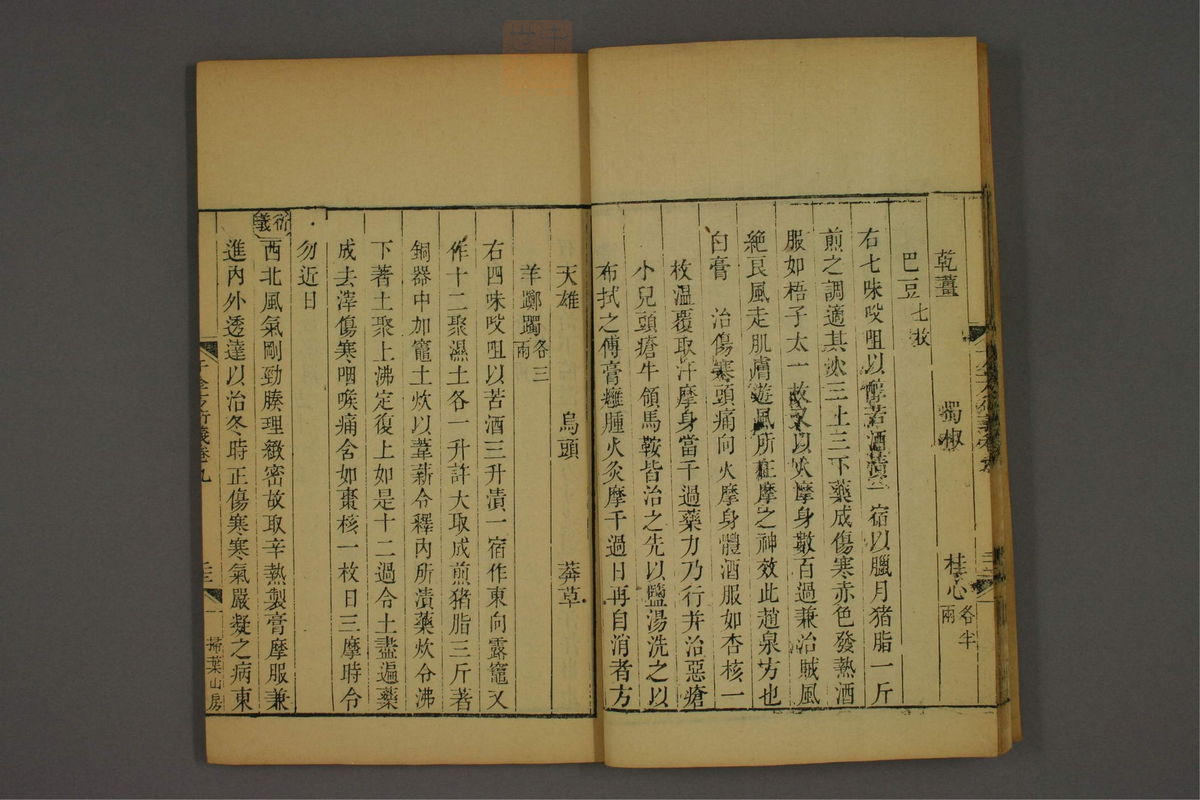 乾薑 蜀椒 桂心各半兩
巴豆七枚
右七味㕮咀以醇苦酒漬一宿以臘月猪脂一斤
煎之調適其火三上三下藥成傷寒赤色發熱酒
服如梧子大一枚又以火摩身數百過兼治賊風
絶良風走肌膚遊風所在摩之神效此趙泉方也
白膏 治傷寒頭痛向火摩身體酒服如杏核一
枚温覆取汗摩身當千過藥力乃行并治惡瘡
小兒頭瘡牛領馬鞍皆治之先以鹽湯洗之以
布拭之傅膏癰腫火灸摩千過日再自消者方
天雄 烏頭 莽草
羊躑躅各三兩
右四味㕮咀以苦酒三升漬一宿作東向露竈又
作十二聚濕土各一升許大取成煎猪脂三斤著
銅器中加竈上炊以葦薪令釋内所漬藥炊令沸
下著土聚上沸定復上如是十二過令土盡遍藥
成去滓傷寒咽喉痛含如棗核一枚日三摩時令
勿近目
衍義
西北風氣剛勁腠理緻密故取辛熱製膏摩服兼
進内外透達以治冬時正傷寒寒氣嚴凝之病東
千金方衍義卷九
掃葉山房